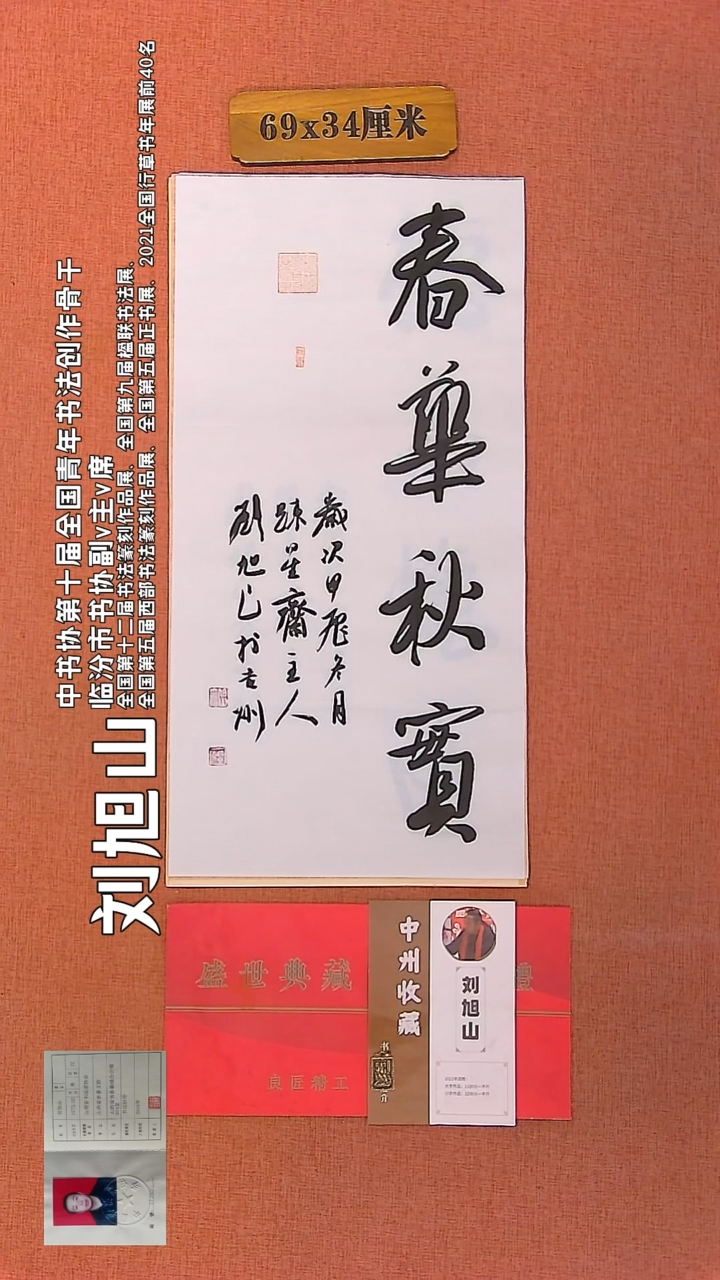 69x34厘米
春華秋實
歲次甲辰冬月
踈星齋主人
劉旭山於吉州
中书协第十届全国青年书法创作骨干
临汾市书协副v主v席
全国第十二届书法篆刻作品展、全国第九届楹联书法展、
全国第五届西部书法篆刻作品展、全国第五届正书展、2021全国行草书年展前40名
刘旭山
盛世典藏
良匠精工
中州收藏
书
介
刘旭山